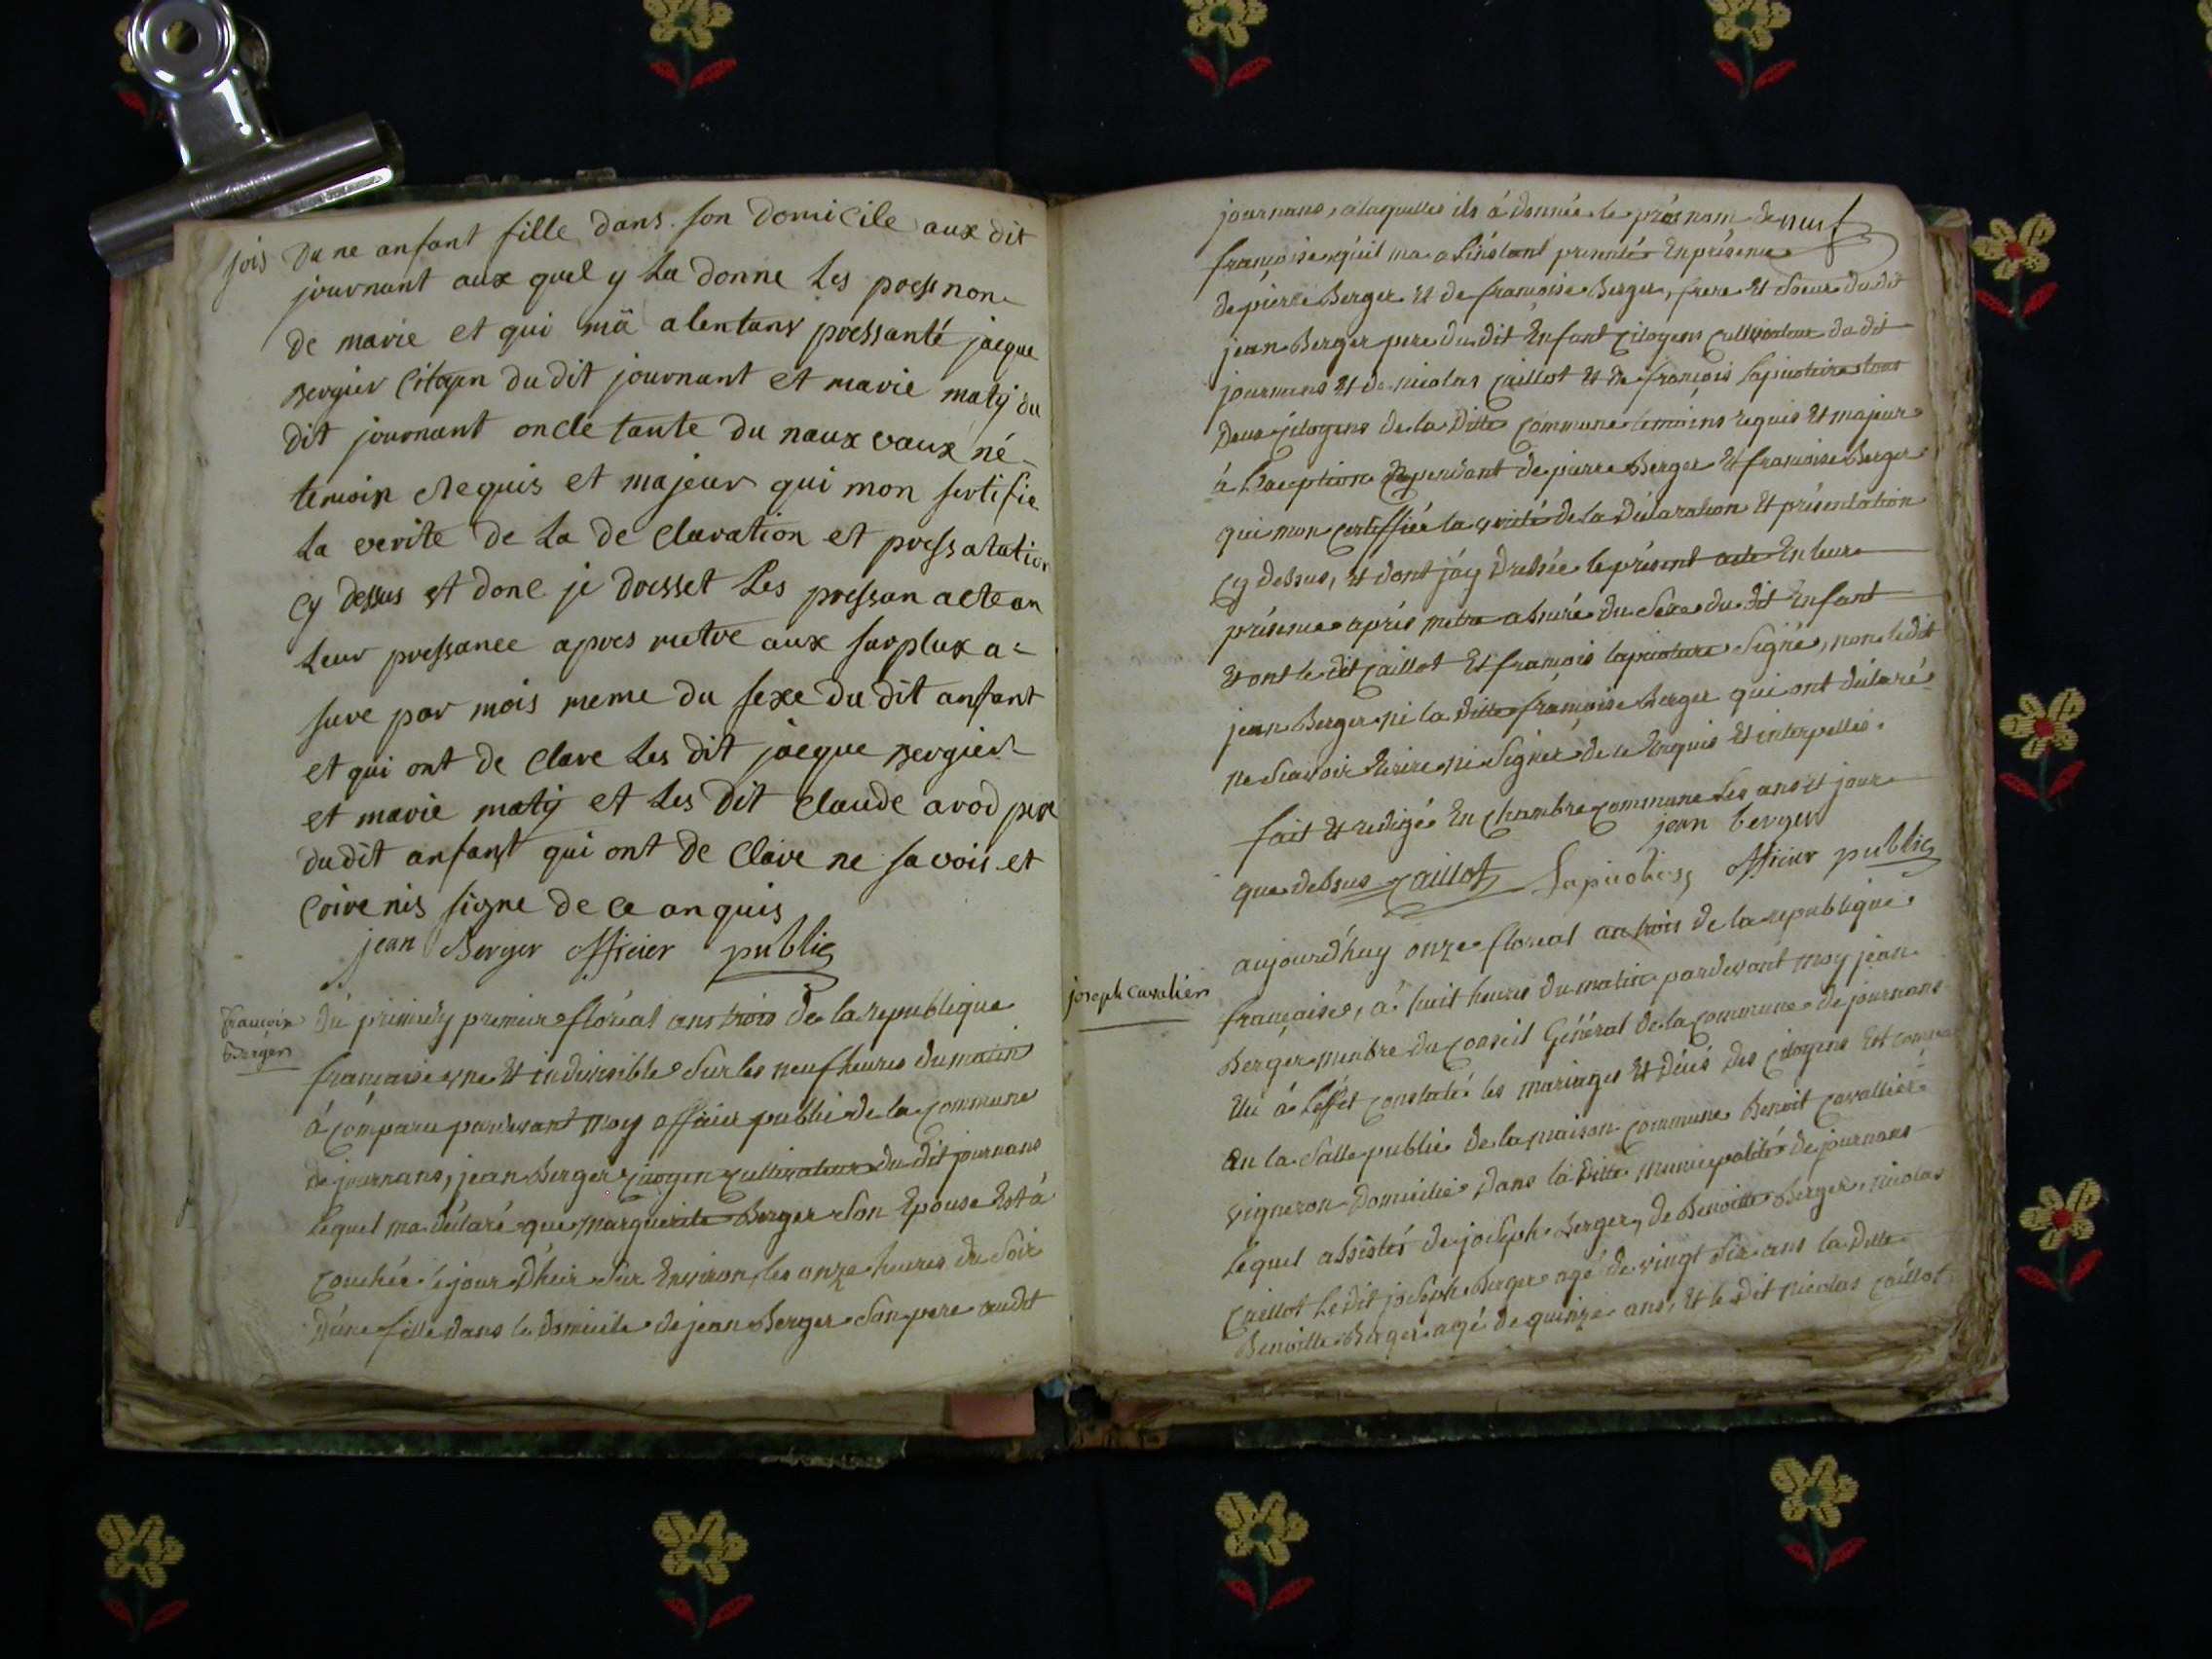 jois Du ne anfant fille dans son domicile aux dit
journant aux quel y la donne les presnon
de marie et qui mä alentans pressanté jacque
Bergier Citoyen du dit journant et marie maty du
dit journant oncle tante du naux vaux né
temoin Requis et majeur qui mon sertifie
la verite de la de claration et pressatation
cy dessus et donc je dresset les pressan acte an
leur pressance apres metre aux surplux a=
sure par mois meme du sexe du dit anfant
et qui ont de clare les dit jacque Bergier
et marie maty et les dit claude avod pere
du dit anfant qui ont de claire ne savois et
crire nis signe de ce anquis
jean Berger officier public
francoise
Berger
Du primedy premier floréal ans trois de la republique
française une et indivisible sur les neuf heures du matin
à comparu pardevant moy officier public de la commune
de journans, jean Berger citoyen cultivateur du dit journans
lequel ma déclaré que marguerite Berger son Epouse Est à
couchée le jour d'hier sur Environ les onze heures du soir
d'une fille dans le domicile de jean Berger son pere audit
journans, alaquelles ils à donnée le prés nom de neuf
françoise qu'il ma a l'instant presentés En présence
de pierre Berger et de françoise Berger, frere et soeur du dit
jean Berger pere du dit Enfant citoyens cultivateur du dit
journans et de nicolas caillot et de françois lapicotiere tous
deux citoyens de la ditte commune temoins requis et majeur
à l'Exception cependant de pierre Berger et françoise Berger
qui mon certiffiée la verité de la déclaration et présentation
cy dessus, et dont j'ay dressée le présent acte En leur
présence aprés metre assurée du sexe du dit Enfant
et ont le dit caillot et françois lapicotiere signé, non ledit
jean Berger ni la ditte françoise Berger qui ont déclaré
ne sçavoir Ecrire ni signer de ce Enquis et interpellés.
fait et redigée En chambre commune les ans et jour
que dessus caillot Lapicotiere jean berger officier public
joseph cavalier
aujourd'huy onze floréal an trois de la republique
française, à huit heures du matin pardevant moy jean
Berger membre du conseil Général de la commune de journans
élu à l'effet constaté les mariages et décés des citoyens Est
En la salle public de la maison commune Benoit cavallier
vigneron domicilié dans la ditte municipalité de journans
lequel assistés de joseph Berger, de Benoitte Berger, nicolas
Caillot ledit joseph Berger agé de vingt six ans la ditte
Benoitte Berger agé de quinze ans, et le dit nicolas caillot